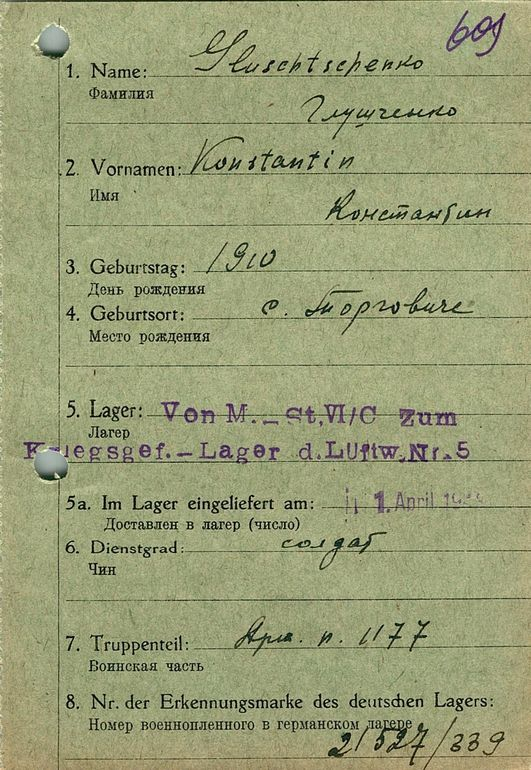 609
1. Name: Gluschtschenko
Фамилия
Глущенко
2. Vornamen: Konstantin
Имя
Константин
3. Geburtstag: 1910
День рождения
4. Geburtsort: с. Торговиче
Место рождения
5. Lager: Von M.-St.VI/C zum
Лагер
Kriegsgef.-Lager d.Luftw.Nr.5
5a. Im Lager eingeliefert am: 1. April
Доставлен в лагер (число)
6. Dienstgrad: солдат
Чин
7. Truppenteil: п. 1177
Воинская часть
8. Nr. der Erkennungsmarke des deutschen Lagers:
Номер военнопленного в германском лагере
21527/339